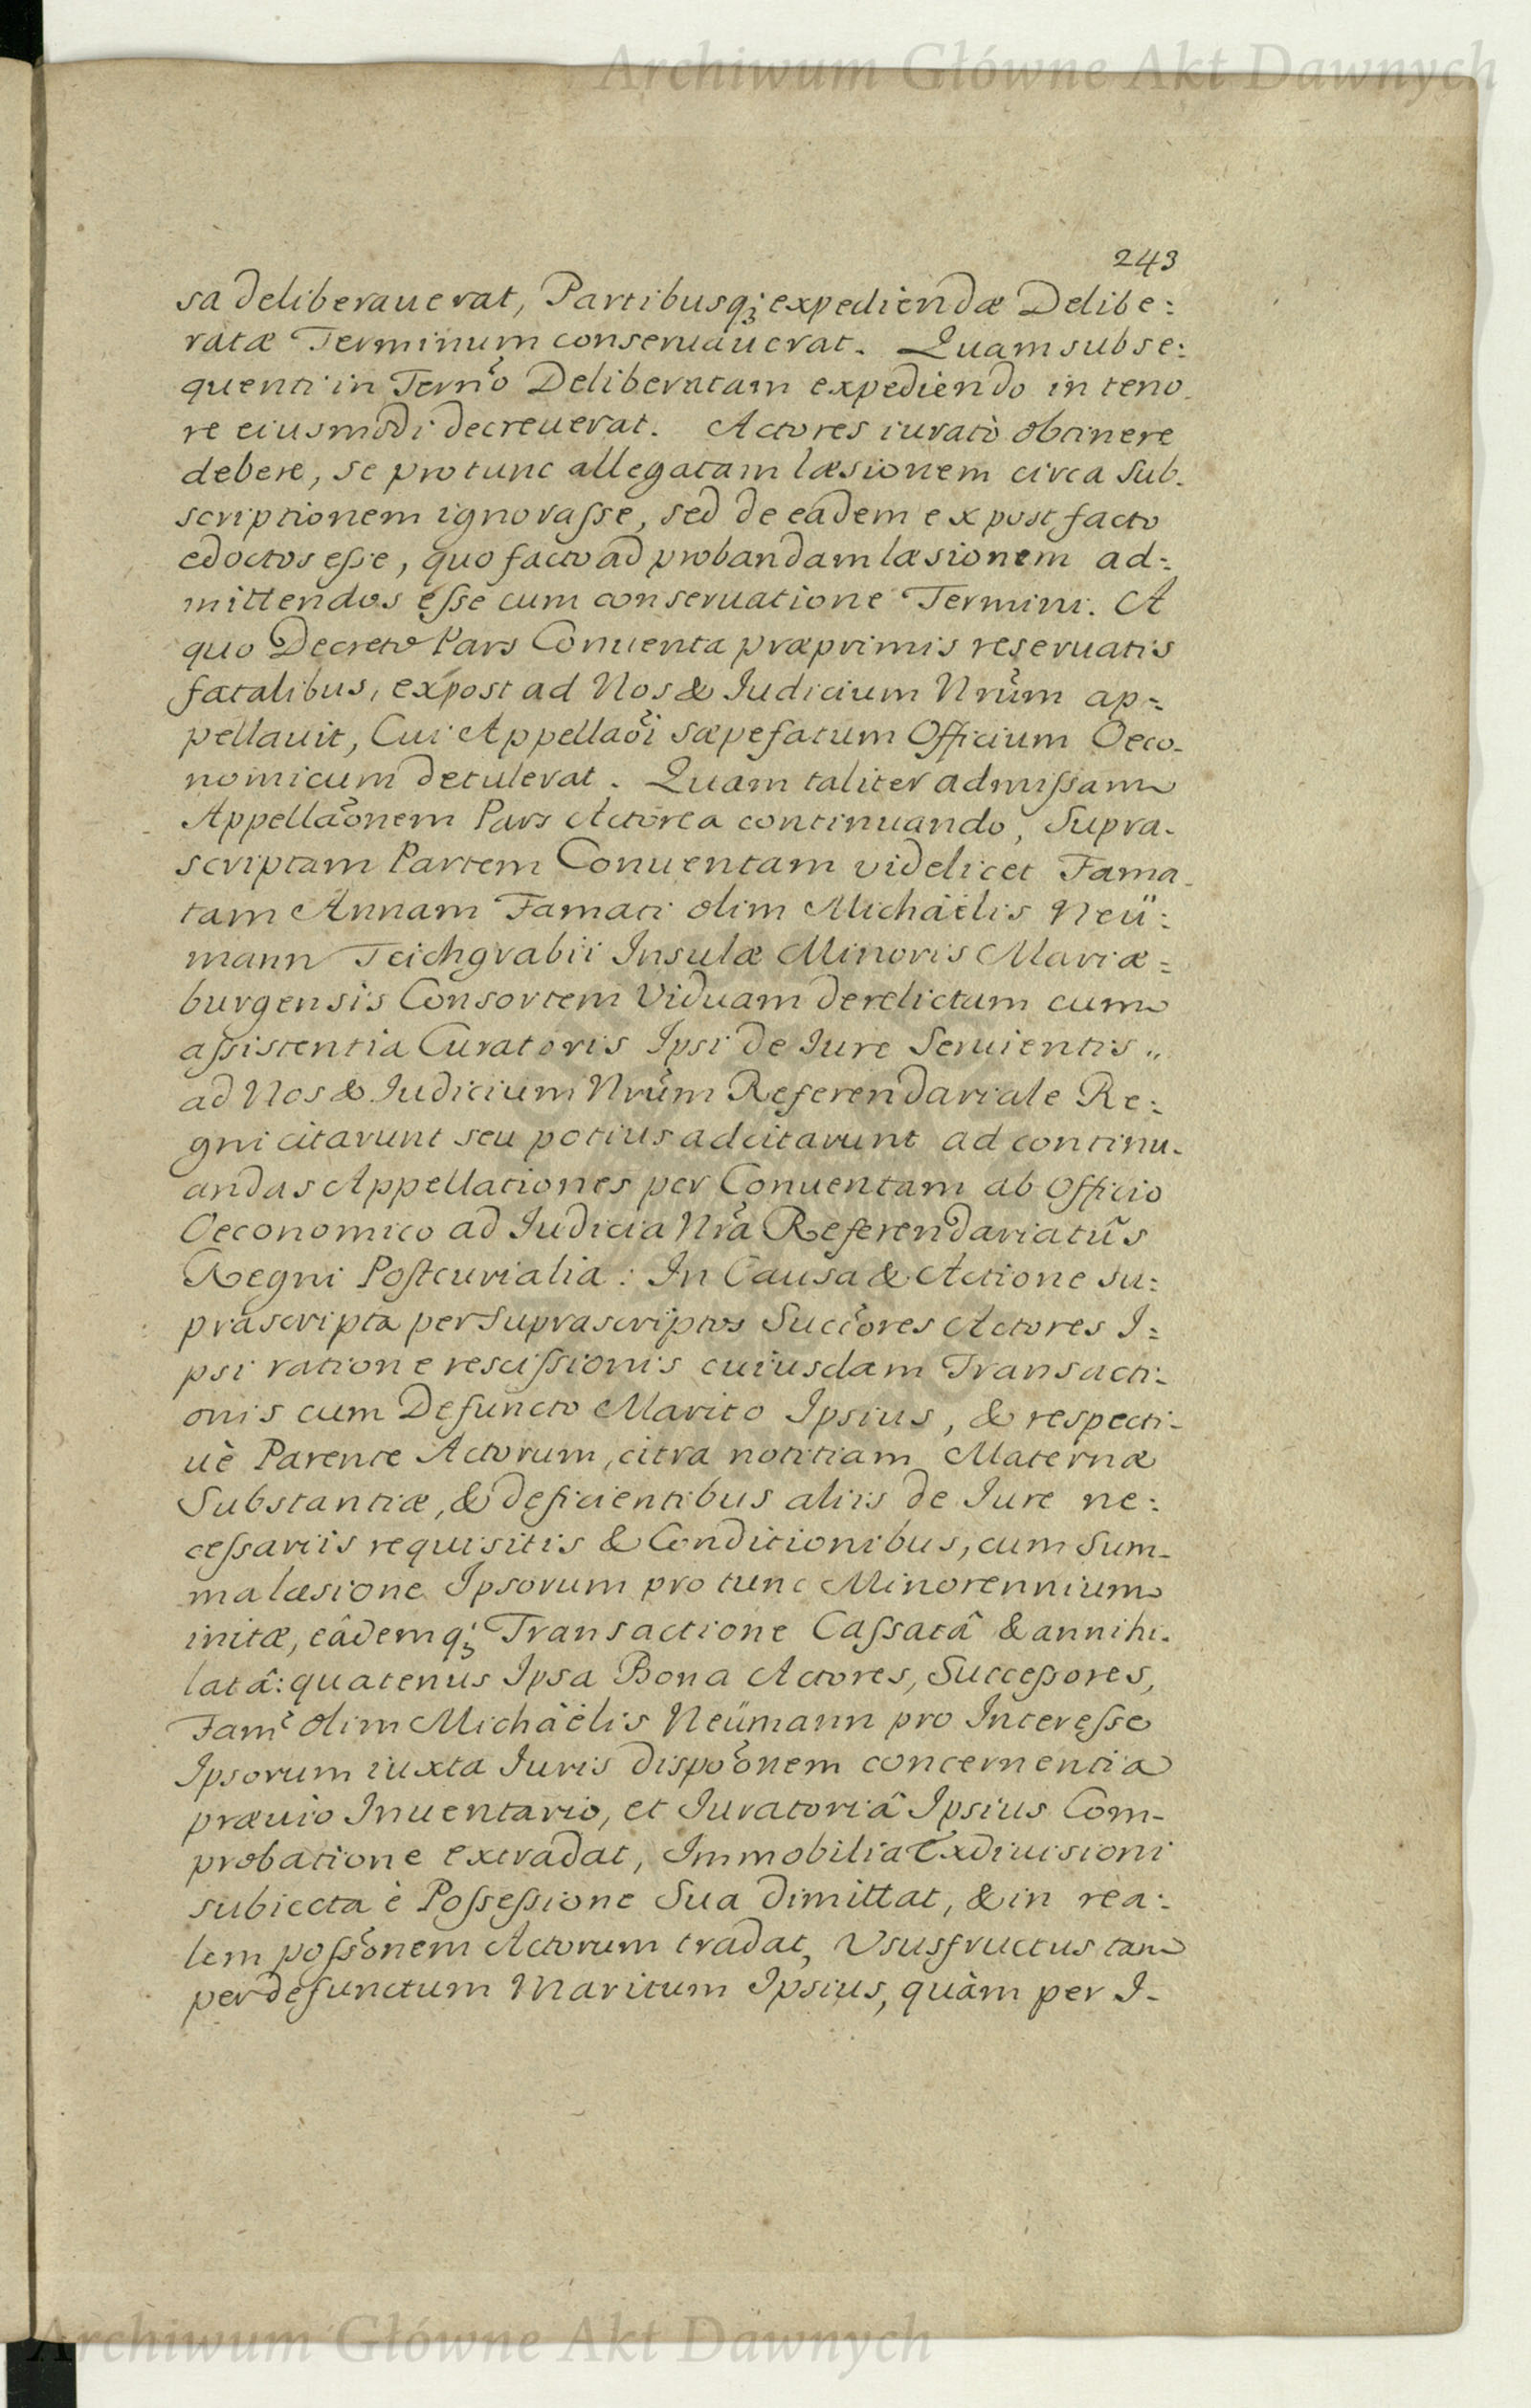 Archiwum Główne Akt Dawnych
243
sa deliberauerat, Partibusq; expediendæ Delibe:
ratæ Terminum conseruauerat. Quam subse:
quenti in Termo Deliberatam expediendo in teno-
re eiusmodi decreuerat. Actores iuratò obtinere
debere, se pro tunc allegatam læsionem circa sub-
scriptionem ignorasse, sed de eadem ex post facto
edoctos esse, quo facto ad probandam læsionem ad:
mittendos esse cum conseruatione Termini. A
quo Decreto Pars Conuenta præprimis reseruatis
fatalibus, expost ad Nos & Iudicium Nrum ap:
pellauit, Cui Appellaoi sæpefatum Officium Oeco-
nomicum detulerat. Quam taliter admissam
Appellaonem Pars Actorea continuando, Supra-
scriptam Partem Conuentam videlicet Fama-
tam Annam Famati olim Michäelis Neü:
mann Teichgrabii Insulæ Minoris Mariæ:
burgensis Consortem Viduam derelictum cum
assistentia Curatoris Ipsi de Iure Seruientis „
ad Nos & Iudicium Nrum Referendariale Re:
gni citarunt seu potius adcitarunt ad continu-
andas Appellationes per Conuentam ab Officio
Oeconomico ad Iudicia Nra Referendariatũs
Regni Postcurialia: In Causa & Actione su:
prascripta per Suprascriptos Succores Actores I:
psi ratione rescissionis cuiusdam Transacti-
onis cum Defuncto Marito Ipsius, & respecti-
uè Parente Actorum, citra notitiam Maternæ
Substantiæ, & deficientibus aliis de Iure ne:
cessariis requisitis & Conditionibus, cum Sum-
ma læsione Ipsorum pro tunc Minorennium
initæ, eâdemq; Transactione Cassatâ & annihi-
latâ: quatenus Ipsa Bona Actores, Successores,
Fam olim Michäelis Neümann pro Interesse
Ipsorum iuxta Iuris dispoonem concernentia
præuio Inuentario, et Iuratoriâ Ipsius Com-
probatione extradat, Immobilia Exdiuisioni
subiecta è Possessione Sua dimittat, & in rea:
lem possonem Actorum tradat, Vsusfructus tam
per defunctum Maritum Ipsius, quàm per I-
Archiwum Główne Akt Dawnych